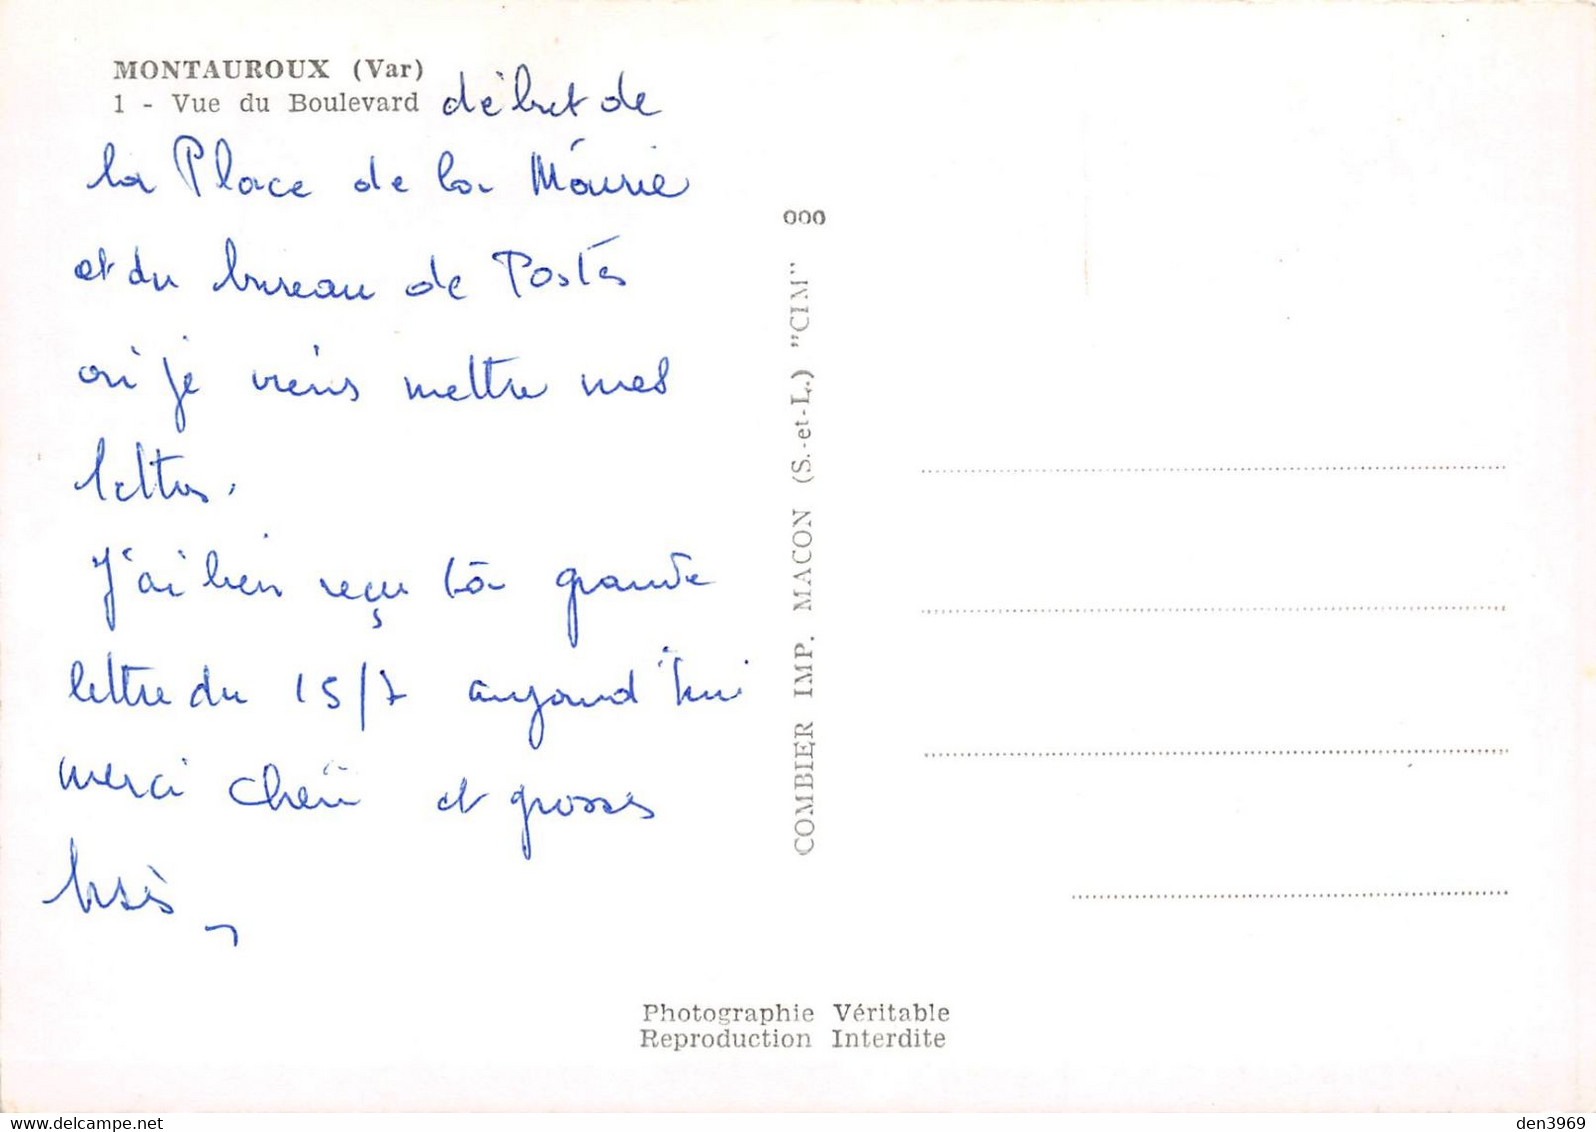 MONTAUROUX (Var)
1 - Vue du Boulevard début de
la Place de la Mairie
et du bureau de Postes
où je viens mettre mes
lettres.
J'ai bien reçu ta grande
lettre du 15/7 aujourd'hui
merci chérie et grosses
bises
000
COMBIER IMP. MACON (S.-et-L.) "CIM"
Photographie Véritable
Reproduction Interdite
www.delcampe.net
den3969